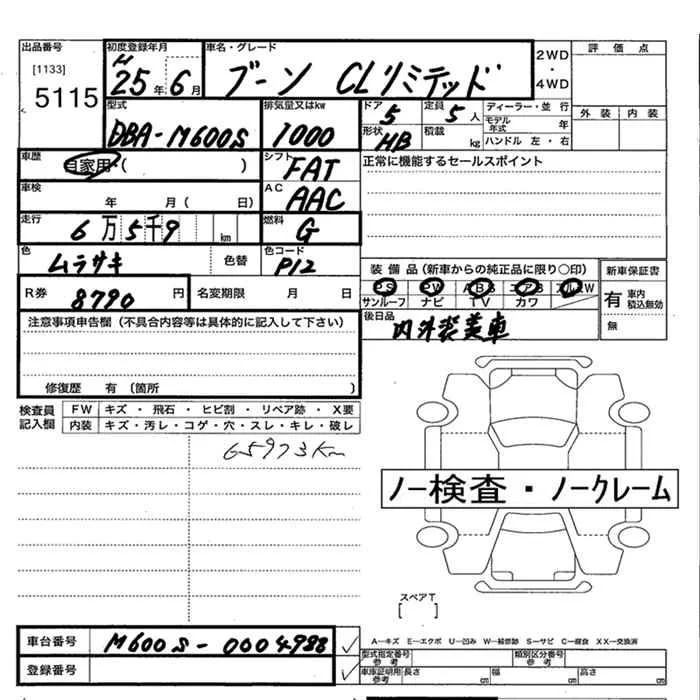 出品番号 初度登録年月 車名・グレード 2WD・4WD 評価点
[1133] 5115 H25年6月 ブーン CLリミテッド 外装 内装
型式 排気量又はkw ドア 5 定員 5人 ディーラー・並行
DBA-M600S 1000 形状 HB 積載 kg モデル年式 年 ハンドル 左・右
車歴 自家用・( ) シフト FAT 正常に機能するセールスポイント
車検 年 月( 日) AC AAC
走行 6万5千9 km 燃料 G
色 ムラサキ 色替 色コード P12
装備品(新車からの純正品に限り〇印) 新車保証書
R券 8790円 名変期限 月 日 PS PW ABS エアB アルミW 有 車内積込無効
サンルーフ ナビ TV カワ 無
注意事項申告欄(不具合内容等は具体的に記入して下さい) 後日品 内外装美車
修復歴 有(箇所 )
検査員記入欄 FW キズ・飛石・ヒビ割・リペア跡・X要
内装 キズ・汚レ・コゲ・穴・スレ・キレ・破レ
65973Km
ノー検査・ノークレーム
スペアT
[ ]
車台番号 M600S-0004988
登録番号
A―キズ E―エクボ U―凹み W―補修跡 S―サビ C―腐食 XX―交換済
型式指定番号 参考 類別区分番号 参考
車庫証明用 参考 長さ cm 幅 cm 高さ cm